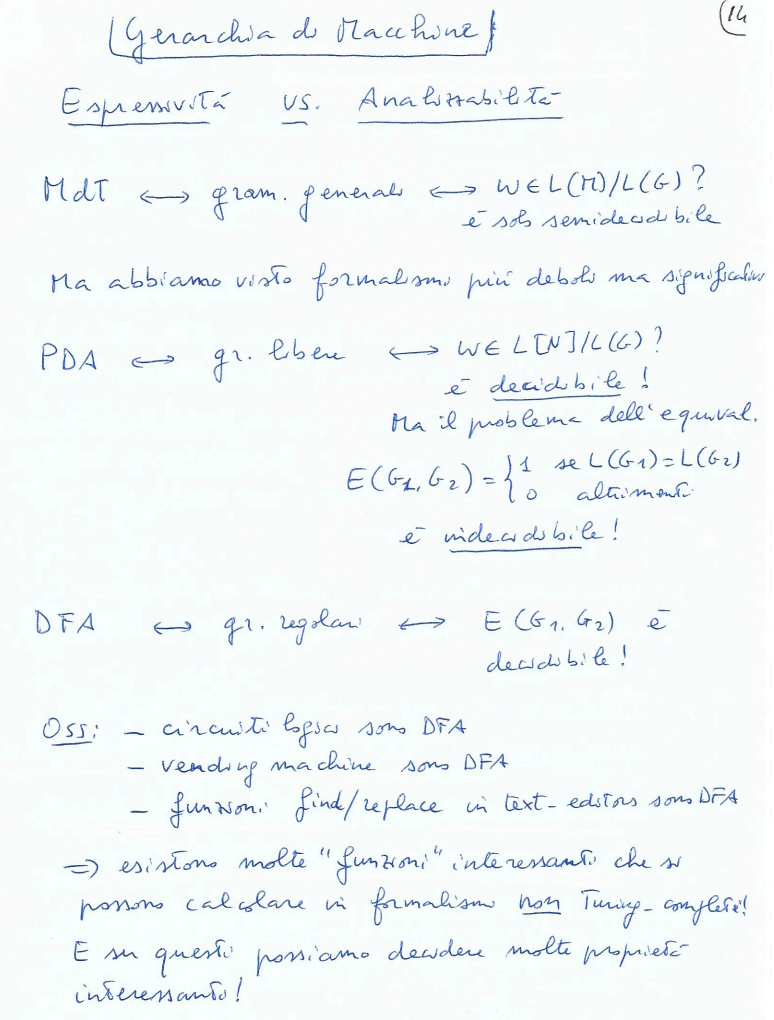 14
Gerarchia di Macchine
Espressività vs. Analizzabilità
MdT ⟷ gram. generali ⟷ w ∈ L(M)/L(G) ?
è solo semidecidibile
Ma abbiamo visto formalismi più deboli ma significativi
PDA ⟷ gr. libere ⟷ w ∈ L[N]/L(G) ?
è decidibile !
Ma il problema dell'equival.
E(G1, G2) = { 1 se L(G1) = L(G2)
0 altrimenti
è indecidibile !
DFA ⟷ gr. regolari ⟷ E(G1, G2) è
decidibile !
Oss: – circuiti logici sono DFA
– vending machine sono DFA
– funzioni find/replace in text-editors sono DFA
⇒ esistono molte "funzioni" interessanti che si
possono calcolare in formalismi non Turing-completi!
E su questi possiamo decidere molte proprietà
interessanti !